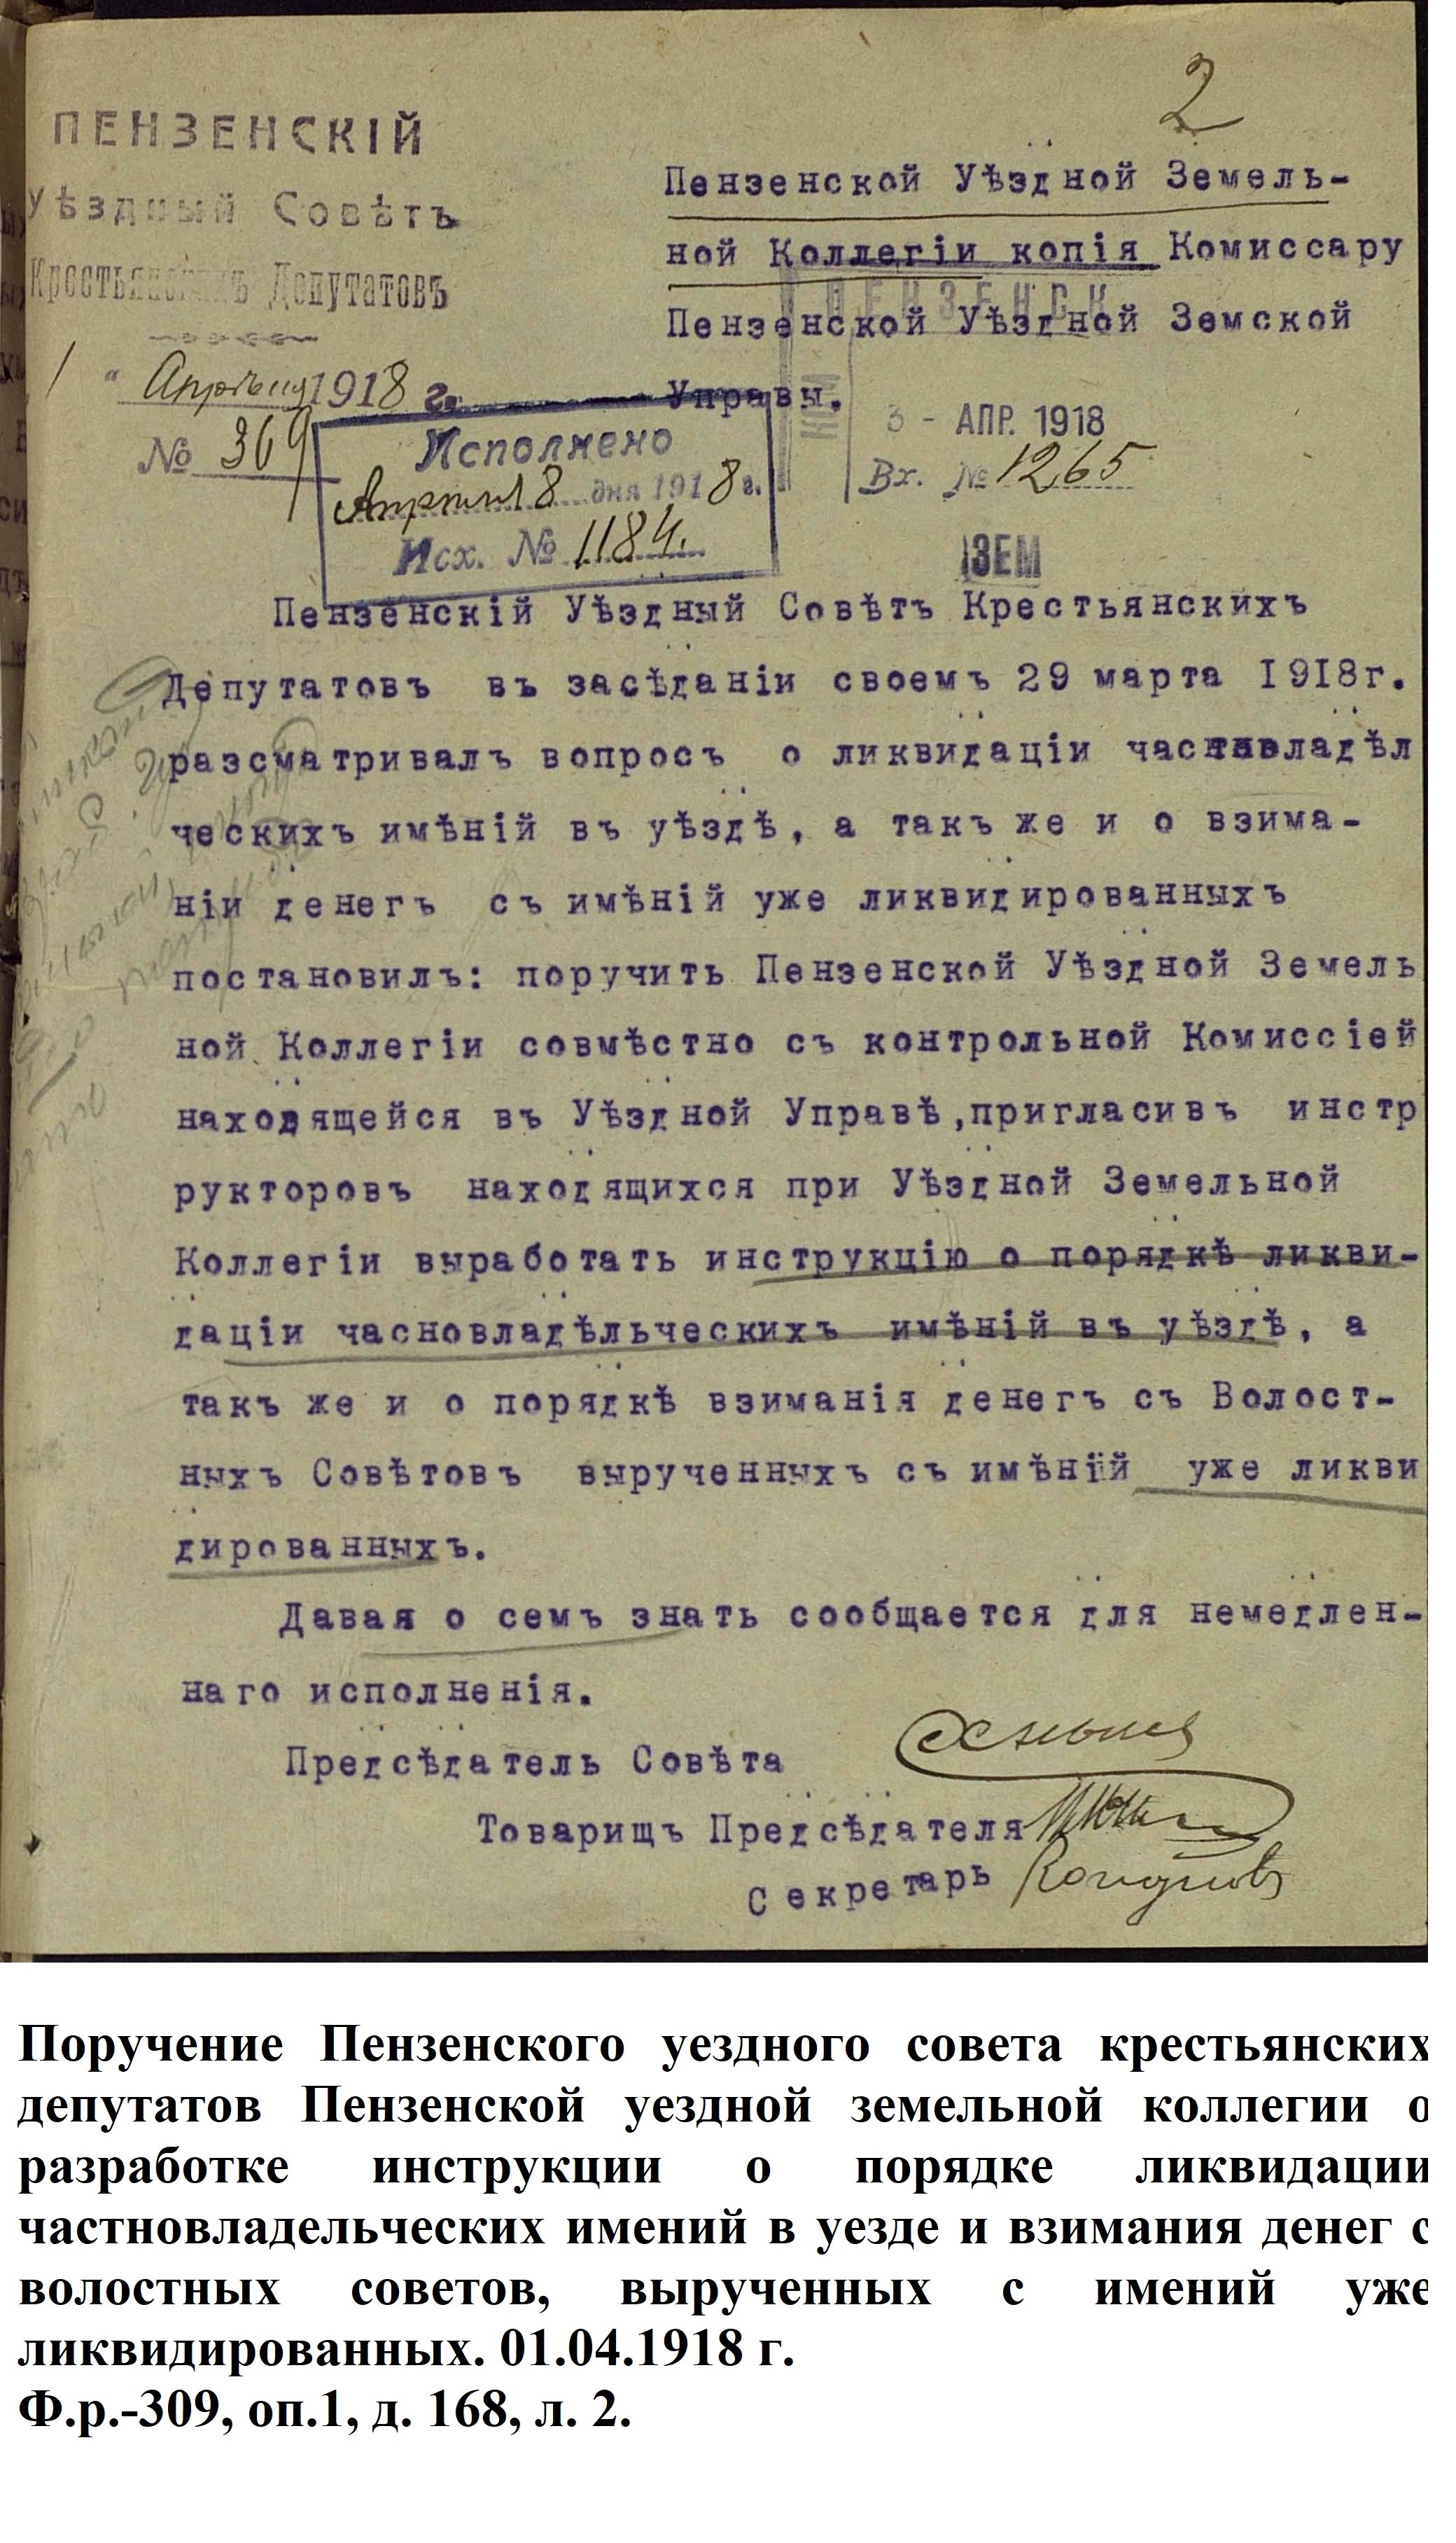 2
ПЕНЗЕНСКІЙ
Уѣздный Совѣтъ
Крестьянскихъ Депутатовъ
1 " Апрѣля 1918 г.
№ 369
Пензенской Уѣздной Земель-
ной Коллегіи копія Комиссару
Пензенской Уѣздной Земской
Управы.
ПЕНЗЕНСК
3 - АПР. 1918
Вх. № 1265
ЗЕМ
Исполнено
Апрѣля 8 дня 1918 г.
Исх. № 1184.
Пензенскій Уѣздный Совѣтъ Крестьянскихъ
Депутатовъ въ засѣданіи своемъ 29 марта 1918г.
разсматривалъ вопросъ о ликвидаціи частновладѣл
ческихъ имѣній въ уѣздѣ, а такъ же и о взима-
ніи денегъ съ имѣній уже ликвидированныхъ
постановилъ: поручить Пензенской Уѣздной Земель
ной Коллегіи совмѣстно съ контрольной Комиссіей
находящейся въ Уѣздной Управѣ,пригласивъ инстр
рукторовъ находящихся при Уѣздной Земельной
Коллегіи выработать инструкцію о порядкѣ ликви-
даціи часновладѣльческихъ имѣній въ уѣздѣ, а
такъ же и о порядкѣ взиманія денегъ съ Волост-
ныхъ Совѣтовъ вырученныхъ съ имѣній уже ликви
дированныхъ.
Давая о семъ знать сообщается для немедлен-
наго исполненія.
Предсѣдатель Совѣта
Товарищъ Предсѣдателя
Секретарь
Поручение Пензенского уездного совета крестьянских
депутатов Пензенской уездной земельной коллегии о
разработке инструкции о порядке ликвидации
частновладельческих имений в уезде и взимания денег с
волостных советов, вырученных с имений уже
ликвидированных. 01.04.1918 г.
Ф.р.-309, оп.1, д. 168, л. 2.